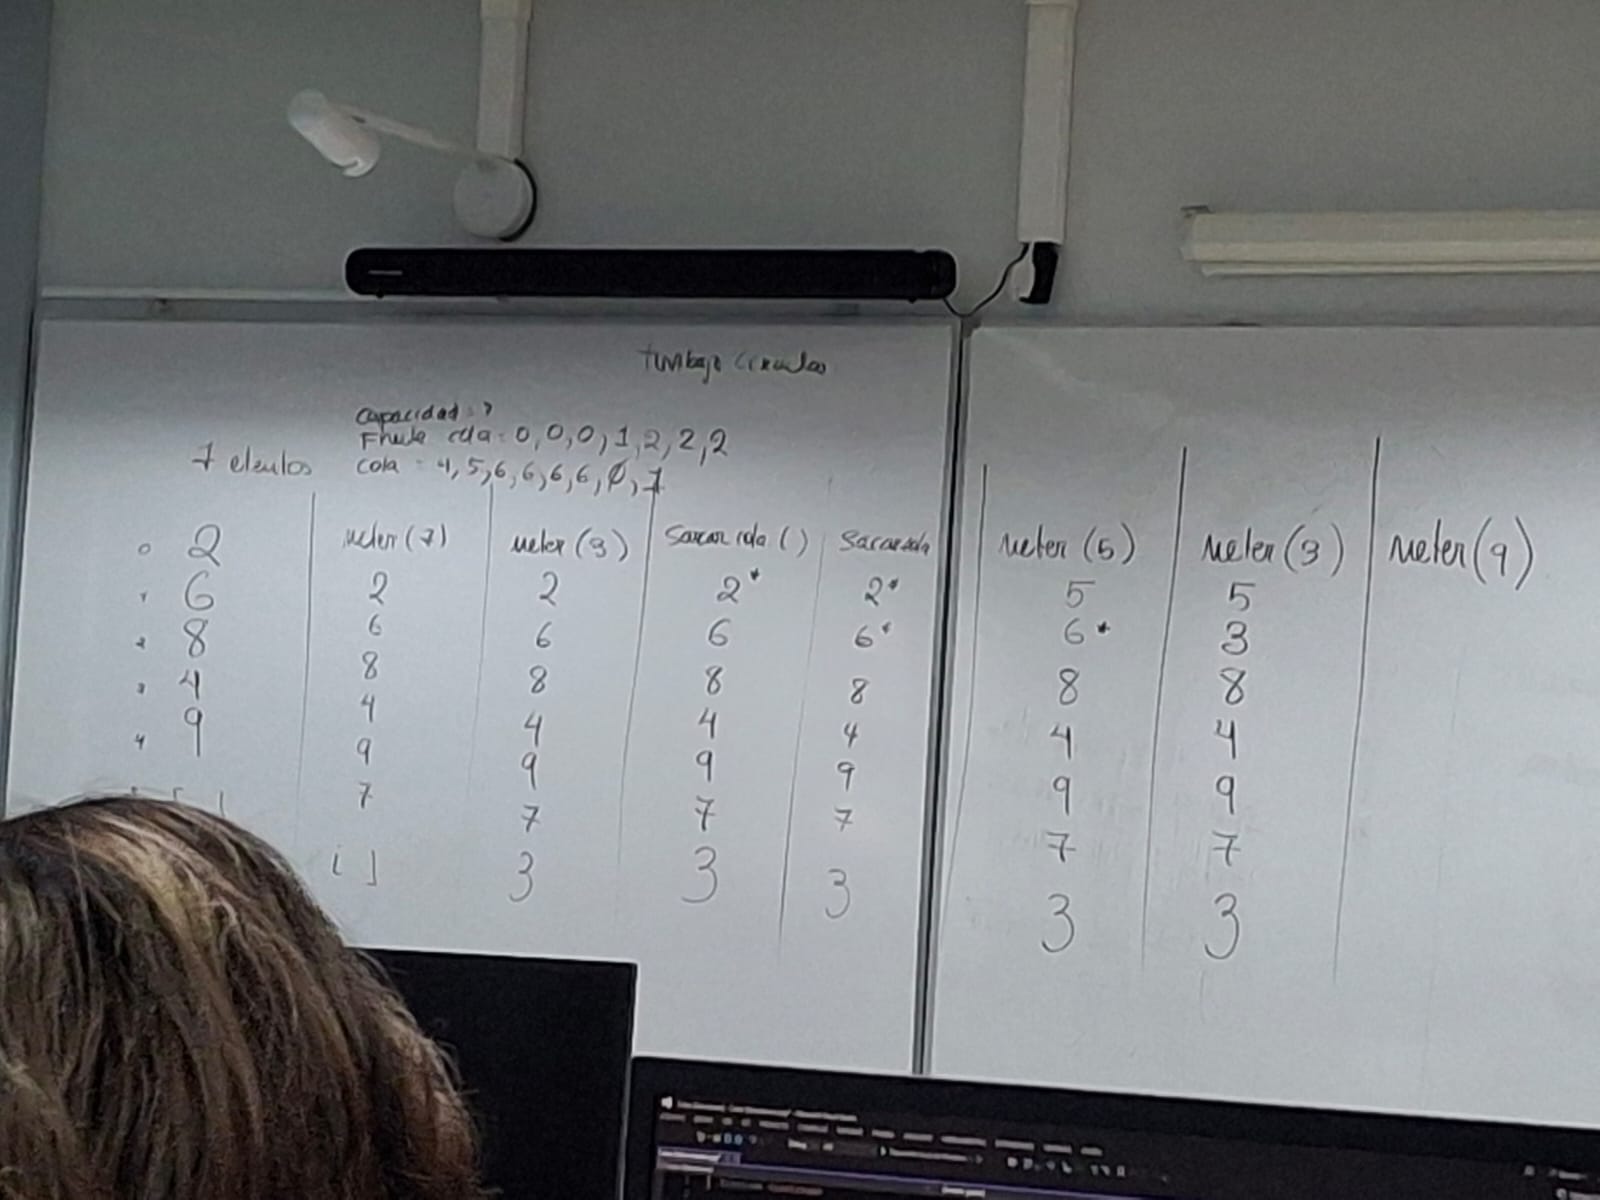 Trabajo Circular
Capacidad = 7
Frente cola = 0, 0, 0, 1, 2, 2, 2
7 elentos
cola = 4, 5, 6, 6, 6, 6, 0, 1
meter (7)
meter (3)
Sacar cola ()
Sacar cola
meter (5)
meter (3)
meter (9)
0 2
1 6 2 2 2* 2* 5 5
2 8 6 6 6 6* 6* 3
3 4 8 8 8 8 8 8
4 9 4 4 4 4 4 4
9 9 9 9 9 9
7 7 7 7 7 7
[ ] 3 3 3 3 3